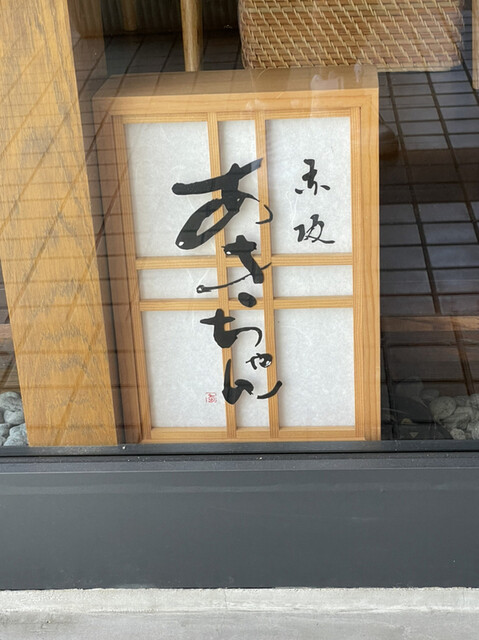 赤坂
あさちゃん